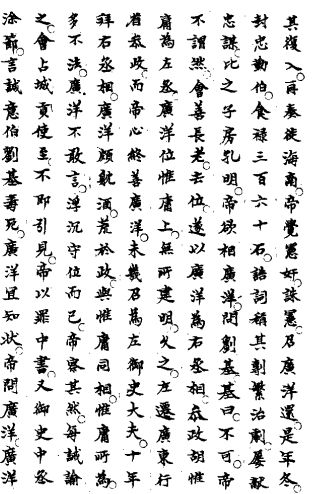 其復入再奏徙海南帝覺憲奸誅憲召廣洋還是年冬
封忠勤伯食祿三百六十石誥詞稱其剸繁治劇屢獻
忠謀比之子房孔明帝欲相廣洋問劉基基曰不可帝
不謂然會善長老去位遂以廣洋為右丞相叅政胡惟
庸為左丞廣洋位惟庸上無所建明久之左遷廣東行
省叅政而帝心終善廣洋未幾召為左御史大夫十年
拜右丞相廣洋頗躭酒荒於政與惟庸同相惟庸所為
多不法廣洋不敢言浮沉守位而已帝容其然每誡諭
之會占城貢使至不即引見帝以罪中書又御史中丞
涂莭言誠意伯劉基毒死廣洋且知狀帝問廣洋廣洋